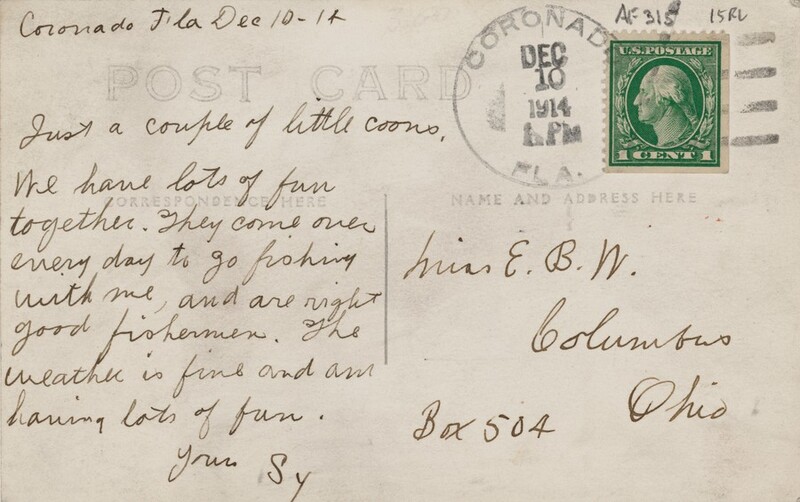 Coronado Fla Dec 10-14
AF 315 15RL
POST CARD
CORONADO
DEC
10
1914
PM
FLA.
U.S. POSTAGE
1 CENT 1
Just a couple of little coons.
We have lots of fun
CORRESPONDENCE HERE
together. They come over
every day to go fishing
with me, and are right
good fishermen. The
weather is fine and am
having lots of fun.
Your Sy
NAME AND ADDRESS HERE
Miss E. B. W.
Columbus
Ohio
Box 504